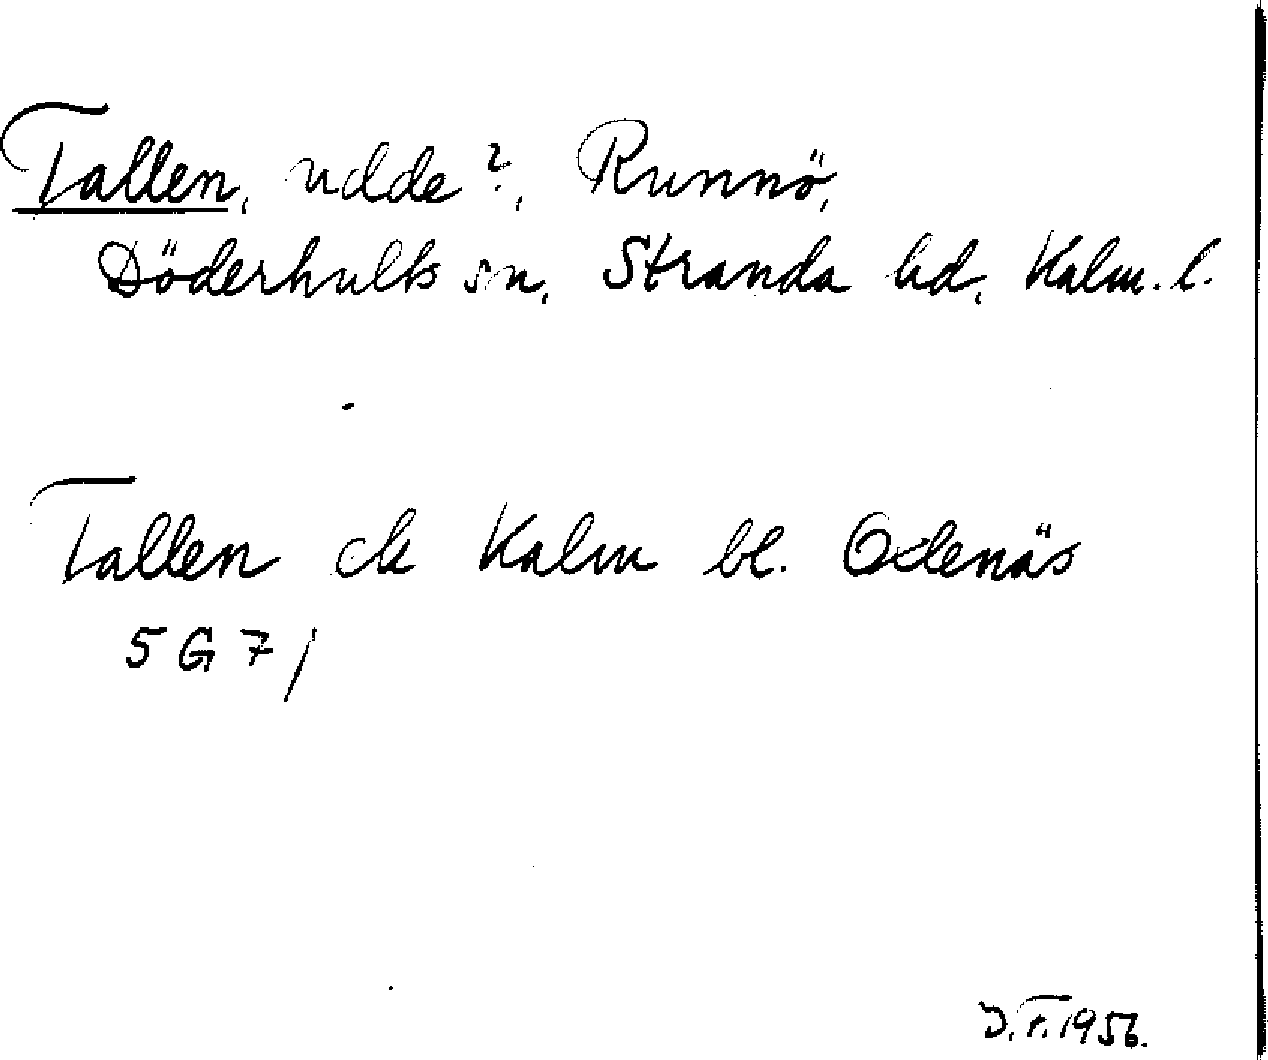 Tallen, udde?, Runnö,
Döderhults sn, Stranda hd, Kalm. l.
Tallen ek Kalm bl. Odenäs
5 G 7 j
D.F. 1956.